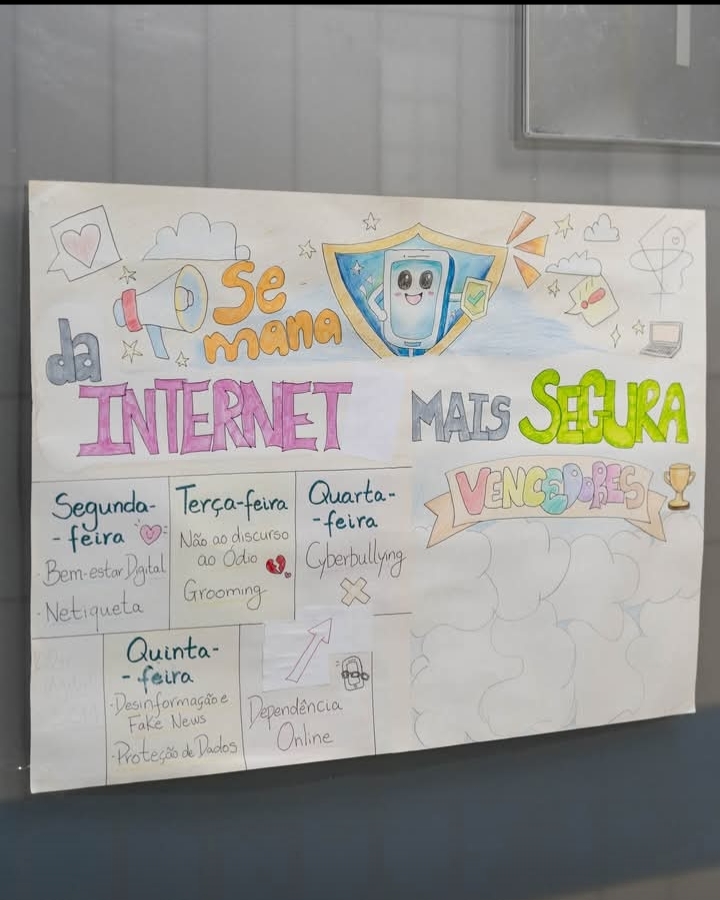 Se
mana
da
INTERNET
MAIS SEGURA
VENCEDORES
Segunda-
-feira
·Bem-estar Digital
·Netiqueta
Terça-feira
Não ao discurso
ao Ódio
Grooming
Quarta-
-feira
Cyberbullying
Quinta-
-feira
·Desinformação e
Fake News
·Proteção de Dados
Dependência
Online